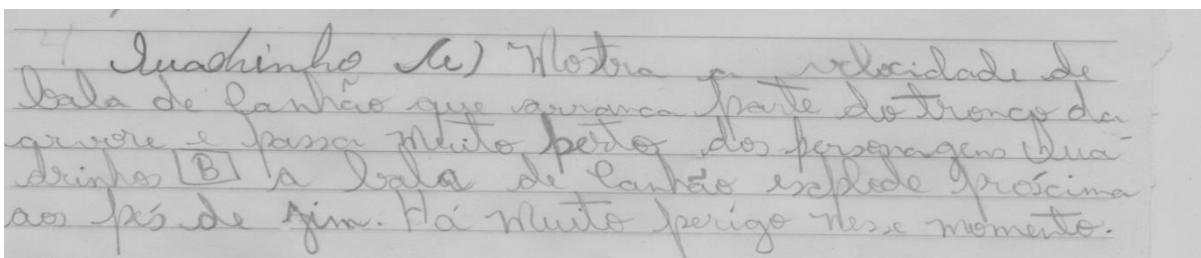 Quadrinho A) Mostra a velocidade de
bala de canhão que arranca parte do tronco da
arvore e passa muito perto dos personagens Qua-
drinhos B A bala de canhão explode próscima
aos pés de Jim. Há muito perigo nesse momento.